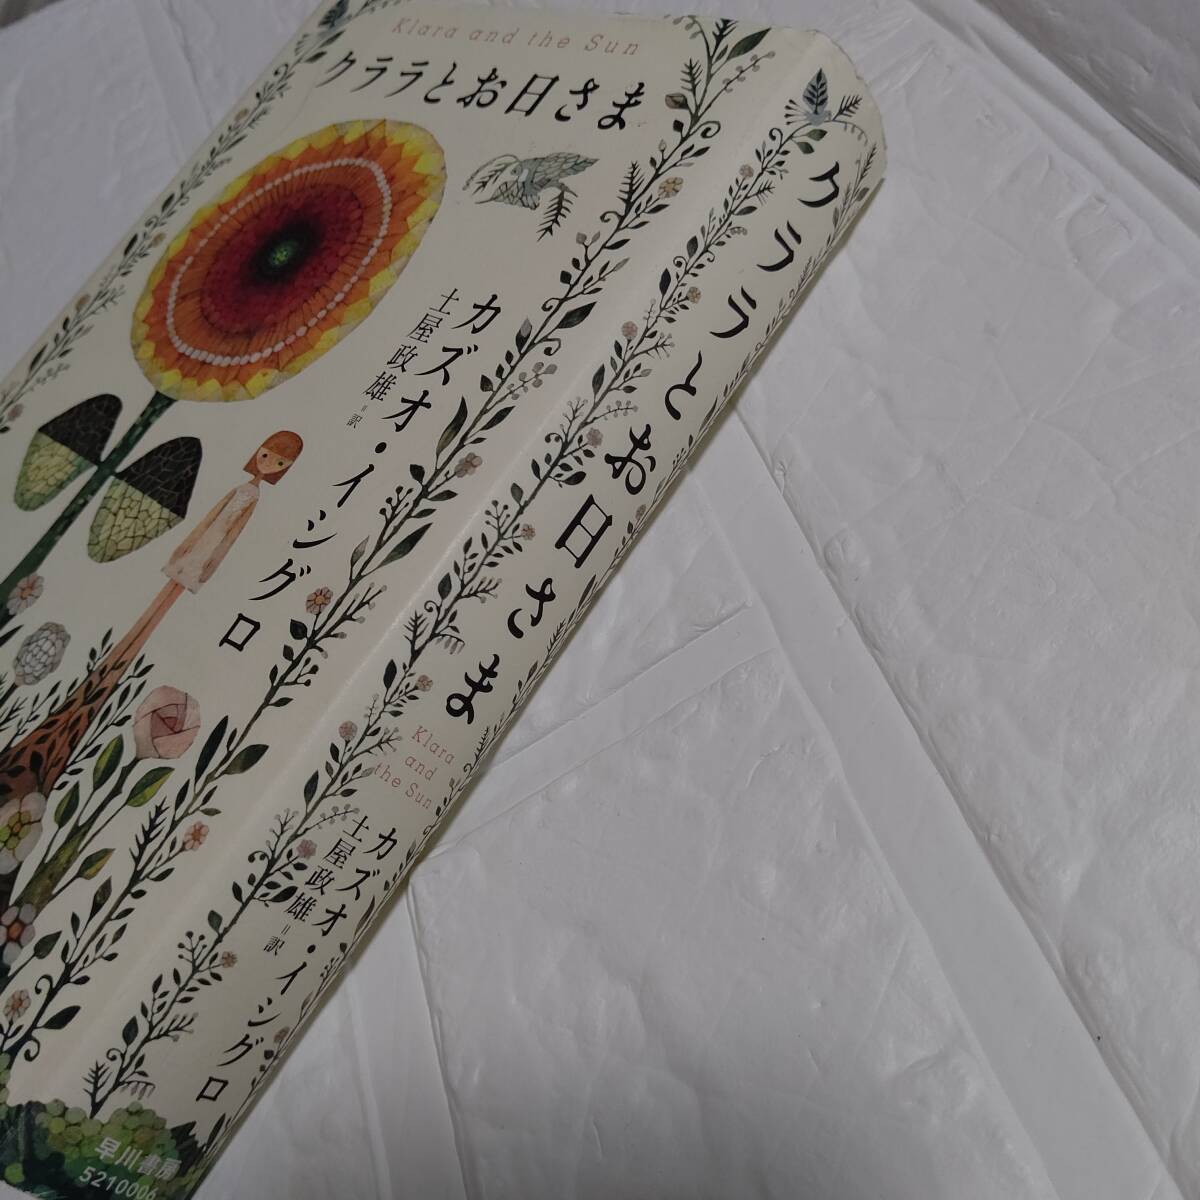 Klara and the Sun
クララとお日さま
カズオ・イシグロ
土屋政雄=訳
クララとお日さま
Klara
and
the Sun
カズオ・イシグロ
土屋政雄=訳
早川書房
5210006